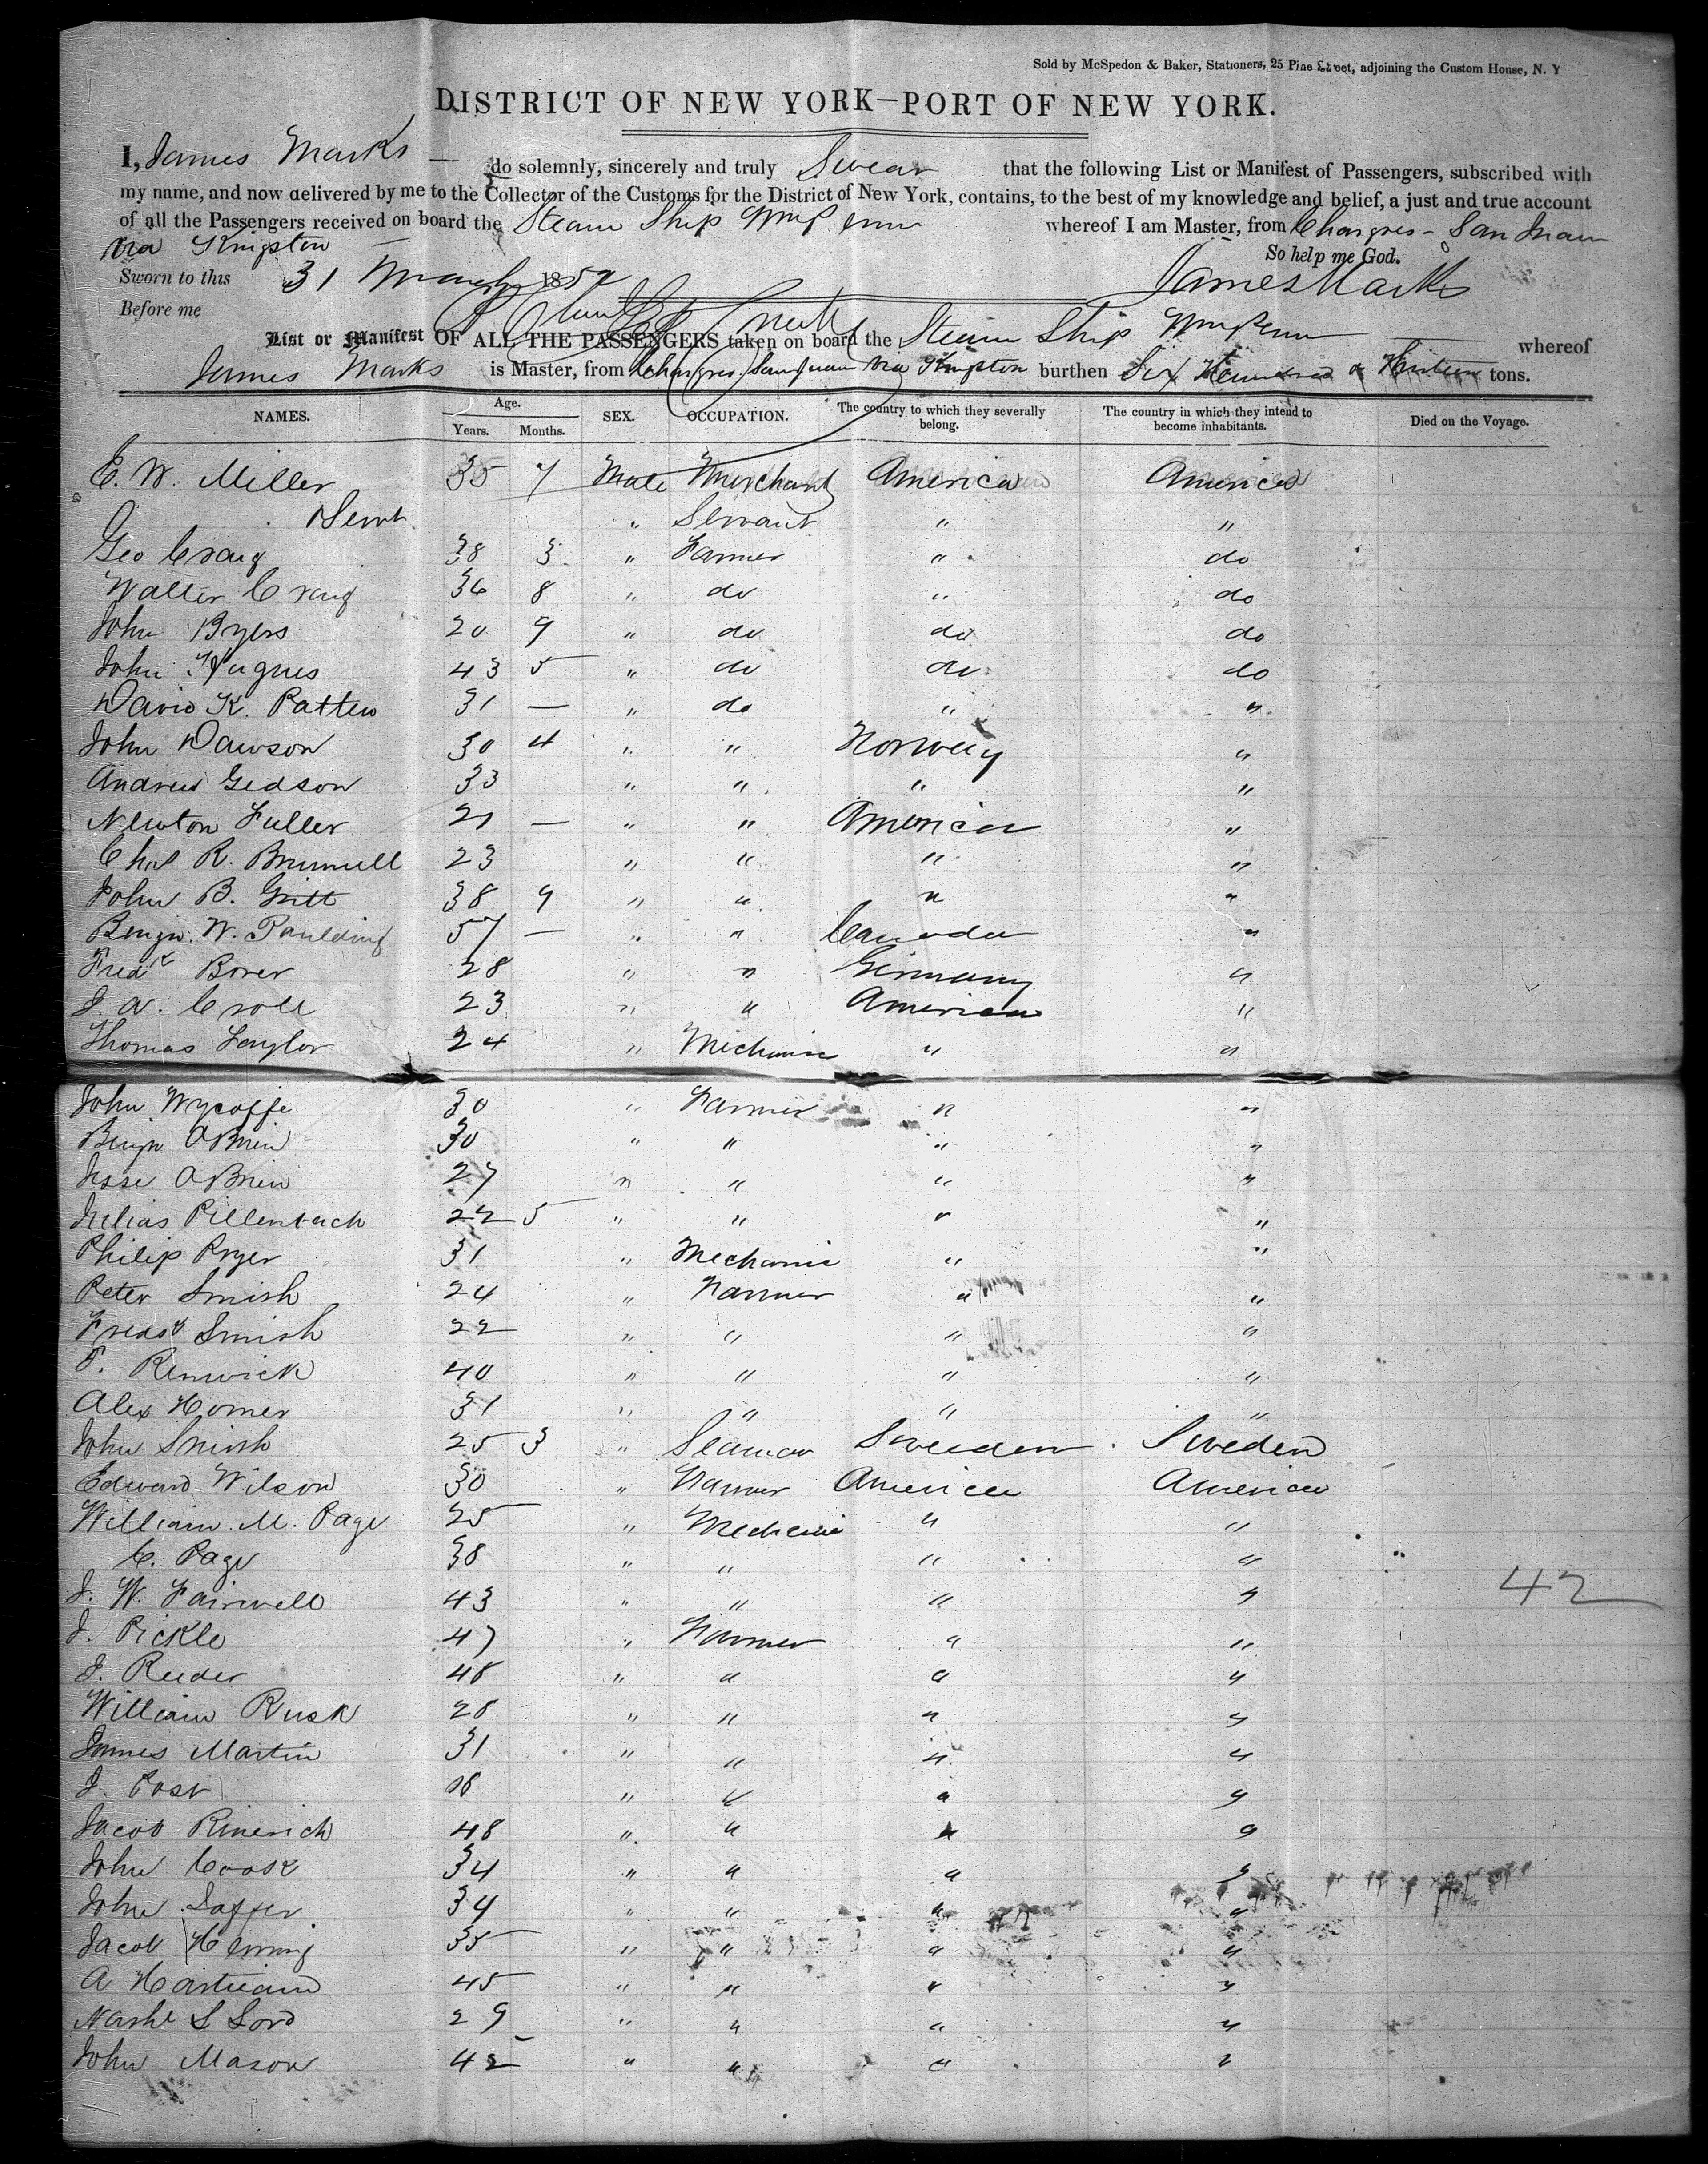 Sold by McSpedon & Baker, Stationers, 25 Pine Street, adjoining the Custom House, N. Y
DISTRICT OF NEW YORK—PORT OF NEW YORK.
I, James Marks — do solemnly, sincerely and truly Swear that the following List or Manifest of Passengers, subscribed with
my name, and now delivered by me to the Collector of the Customs for the District of New York, contains, to the best of my knowledge and belief, a just and true account
of all the Passengers received on board the Steam Ship Wm Penn whereof I am Master, from Chargres - San Juan
via Kingston —
So help me God.
Sworn to this 31 March 1852 James Marks
Before me
List or Manifest OF ALL THE PASSENGERS taken on board the Steam Ship Wm Penn whereof
James Marks is Master, from Chargres, San Juan via Kingston burthen Six Hundred & tons.
NAMES. Age. Years. Months. SEX. OCCUPATION. The country to which they severally belong. The country in which they intend to become inhabitants. Died on the Voyage.
E. W. Miller 35 7 Male Merchant America America
Servt " Servant " "
Geo Craig 38 3 " Farmer " do
Walter Craig 36 8 " do " do
John Byers 20 9 " do do do
John Hugnes 43 5 " do do do
David K. Patten 31 — " do " "
John Dawson 30 4 " " Norway "
Andrew Gedson 33 " " " "
Newton Fuller 21 — " " America "
Chas R. Brumell 23 " " " "
John B. Gritt 38 9 " " " "
Benjn. W. Paulding 57 — " " Canada "
Fredk Borer 28 " " Germany "
J. A. Croll 23 " " America "
Thomas Taylor 24 " Mechanic " "
John Wycoffe 30 " Farmer " "
Benjn OBrien 30 " " " "
Jesse OBrien 27 " " " "
Julias Pillenbach 22 5 " " " "
Philip Pryer 31 " Mechanic " "
Peter Smish 24 " Farmer " "
Fredk Smish 22 " " " "
Renwick 40 " " " "
Alex Homer 31 " " " "
John Smish 25 3 " Seaman Sweeden Sweden
Edward Wilson 30 " Farmer America America
William. M. Page 25 " Mechanic " "
C. Page 38 " " " "
J. W. Fairwell 43 " " " "
J. Pickle 47 " Farmer " "
J. Reeder 48 " " " "
William Rusk 28 " " " "
James Martin 31 " " " "
J. Post 18 " " " "
Jacob Rinerich 48 " " " "
John Cook 34 " " " "
John 34 " " " "
Jacob 35 " " " "
A Hartman 45 " " " "
S Lord 29 " " " "
John Mason 42 " " " "
42